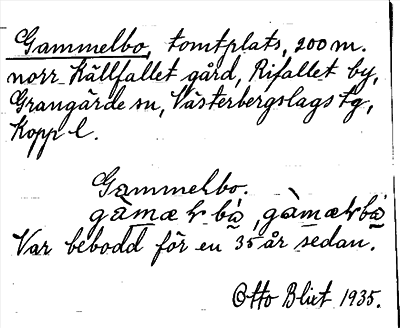 Gammelbo, tomtplats, 200 m.
norr Källfallet gård, Rifallet by,
Grangärde sn, Västerbergslags tg,
Kopp l.
Gammelbo.
Var bebodd för en 35 år sedan.
Otto Blixt 1935.